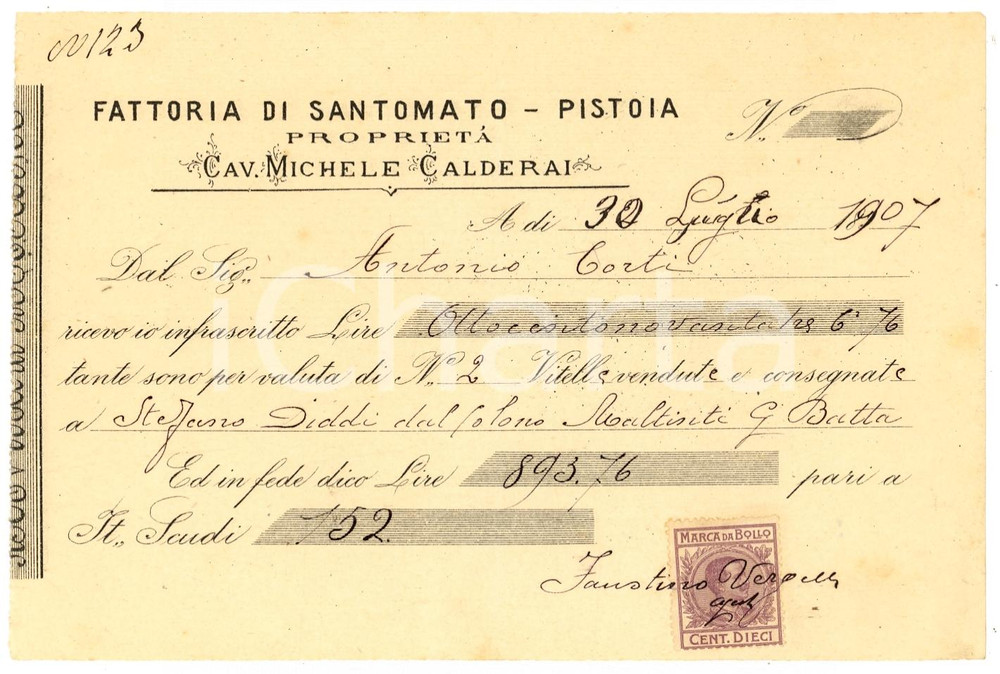 N 123
FATTORIA DI SANTOMATO – PISTOIA
N.º
PROPRIETÁ
CAV. MICHELE CALDERAI
A di 30 Luglio 1907
Dal Sig.. Antonio Corti
iCharta
ricevo io infrascritto Lire Ottocentonovantatre C 76
tante sono per valuta di N. 2 Vitelle vendute e consegnate
a Stefano Diddi dal Colono G Batta
Ed in fede dico Lire 893.76 pari a
It.. Scudi 152.
MARCA DA BOLLO
Faustino
CENT. DIECI